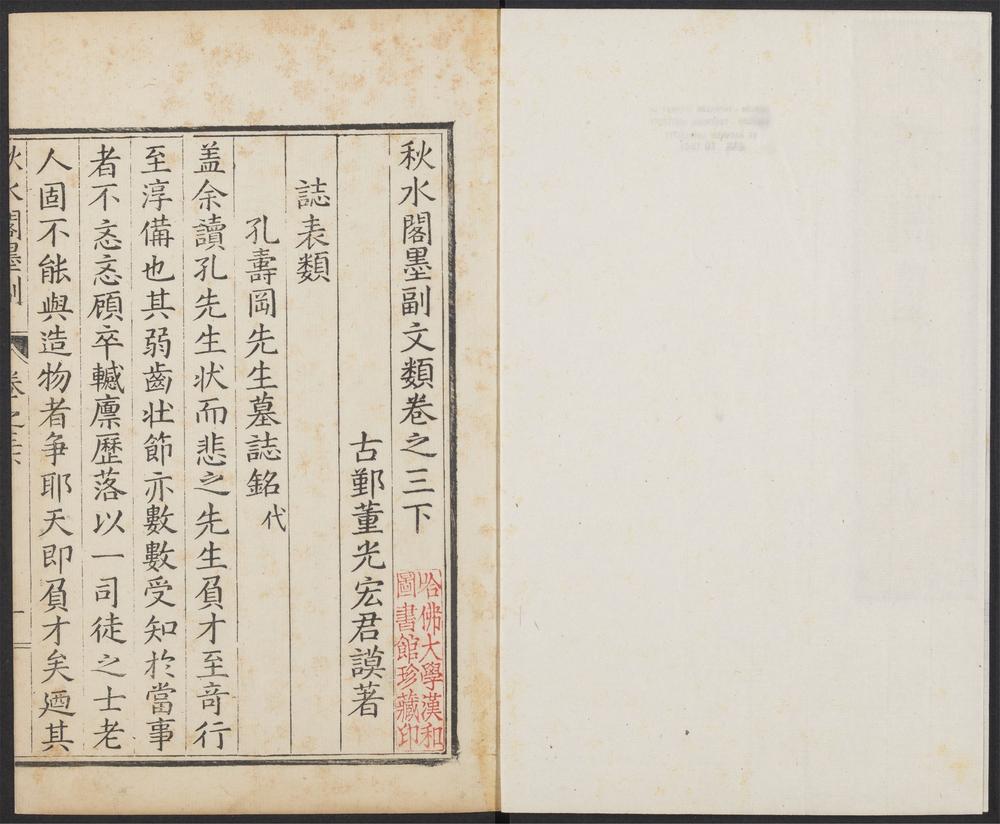 秋水閣墨副文類卷之三下
古鄞董光宏君謨著
誌表類
孔壽岡先生墓誌銘代
盖余讀孔先生状而悲之先生負才至竒行
至淳備也其弱齒壮節亦數數受知於當事
者不忞忞顧卒轗廪歷落以一司徒之士老
人固不能與造物者争耶天即負才矣廼其
秋水閣墨副
卷之三下
一
哈佛大學漢和
圖書館珍藏印